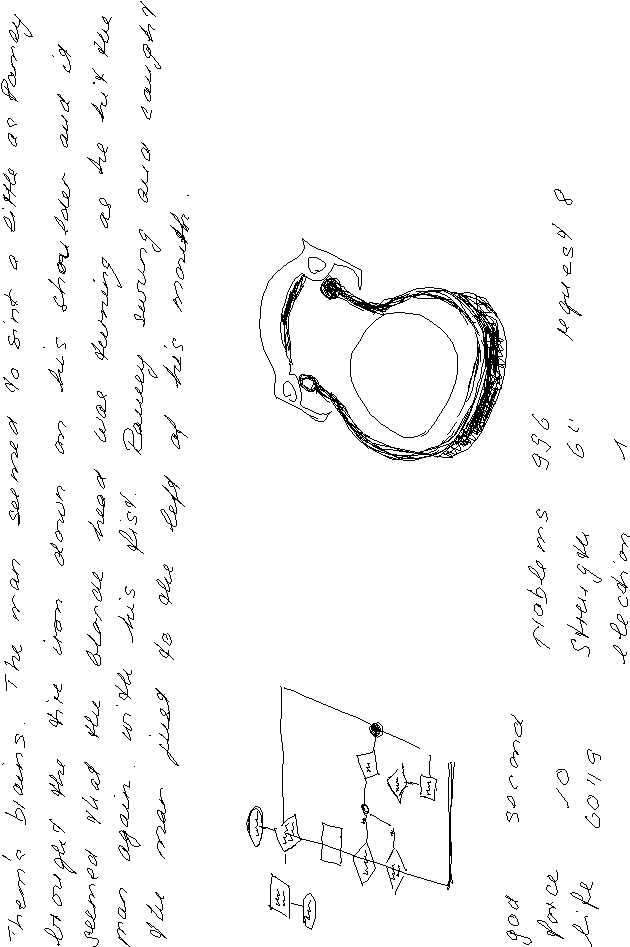 Them's blains. The man seemed to sint a little as Ramey
brought the tire iron down on his shoulder and it
seemed that the blonde head was turning as he hit the
man again. with his fist. Ramey swung and caught
the man just to the left of his mouth.
god second problems 996 request 8
force 10 Strength 6"
life 6049 election 1